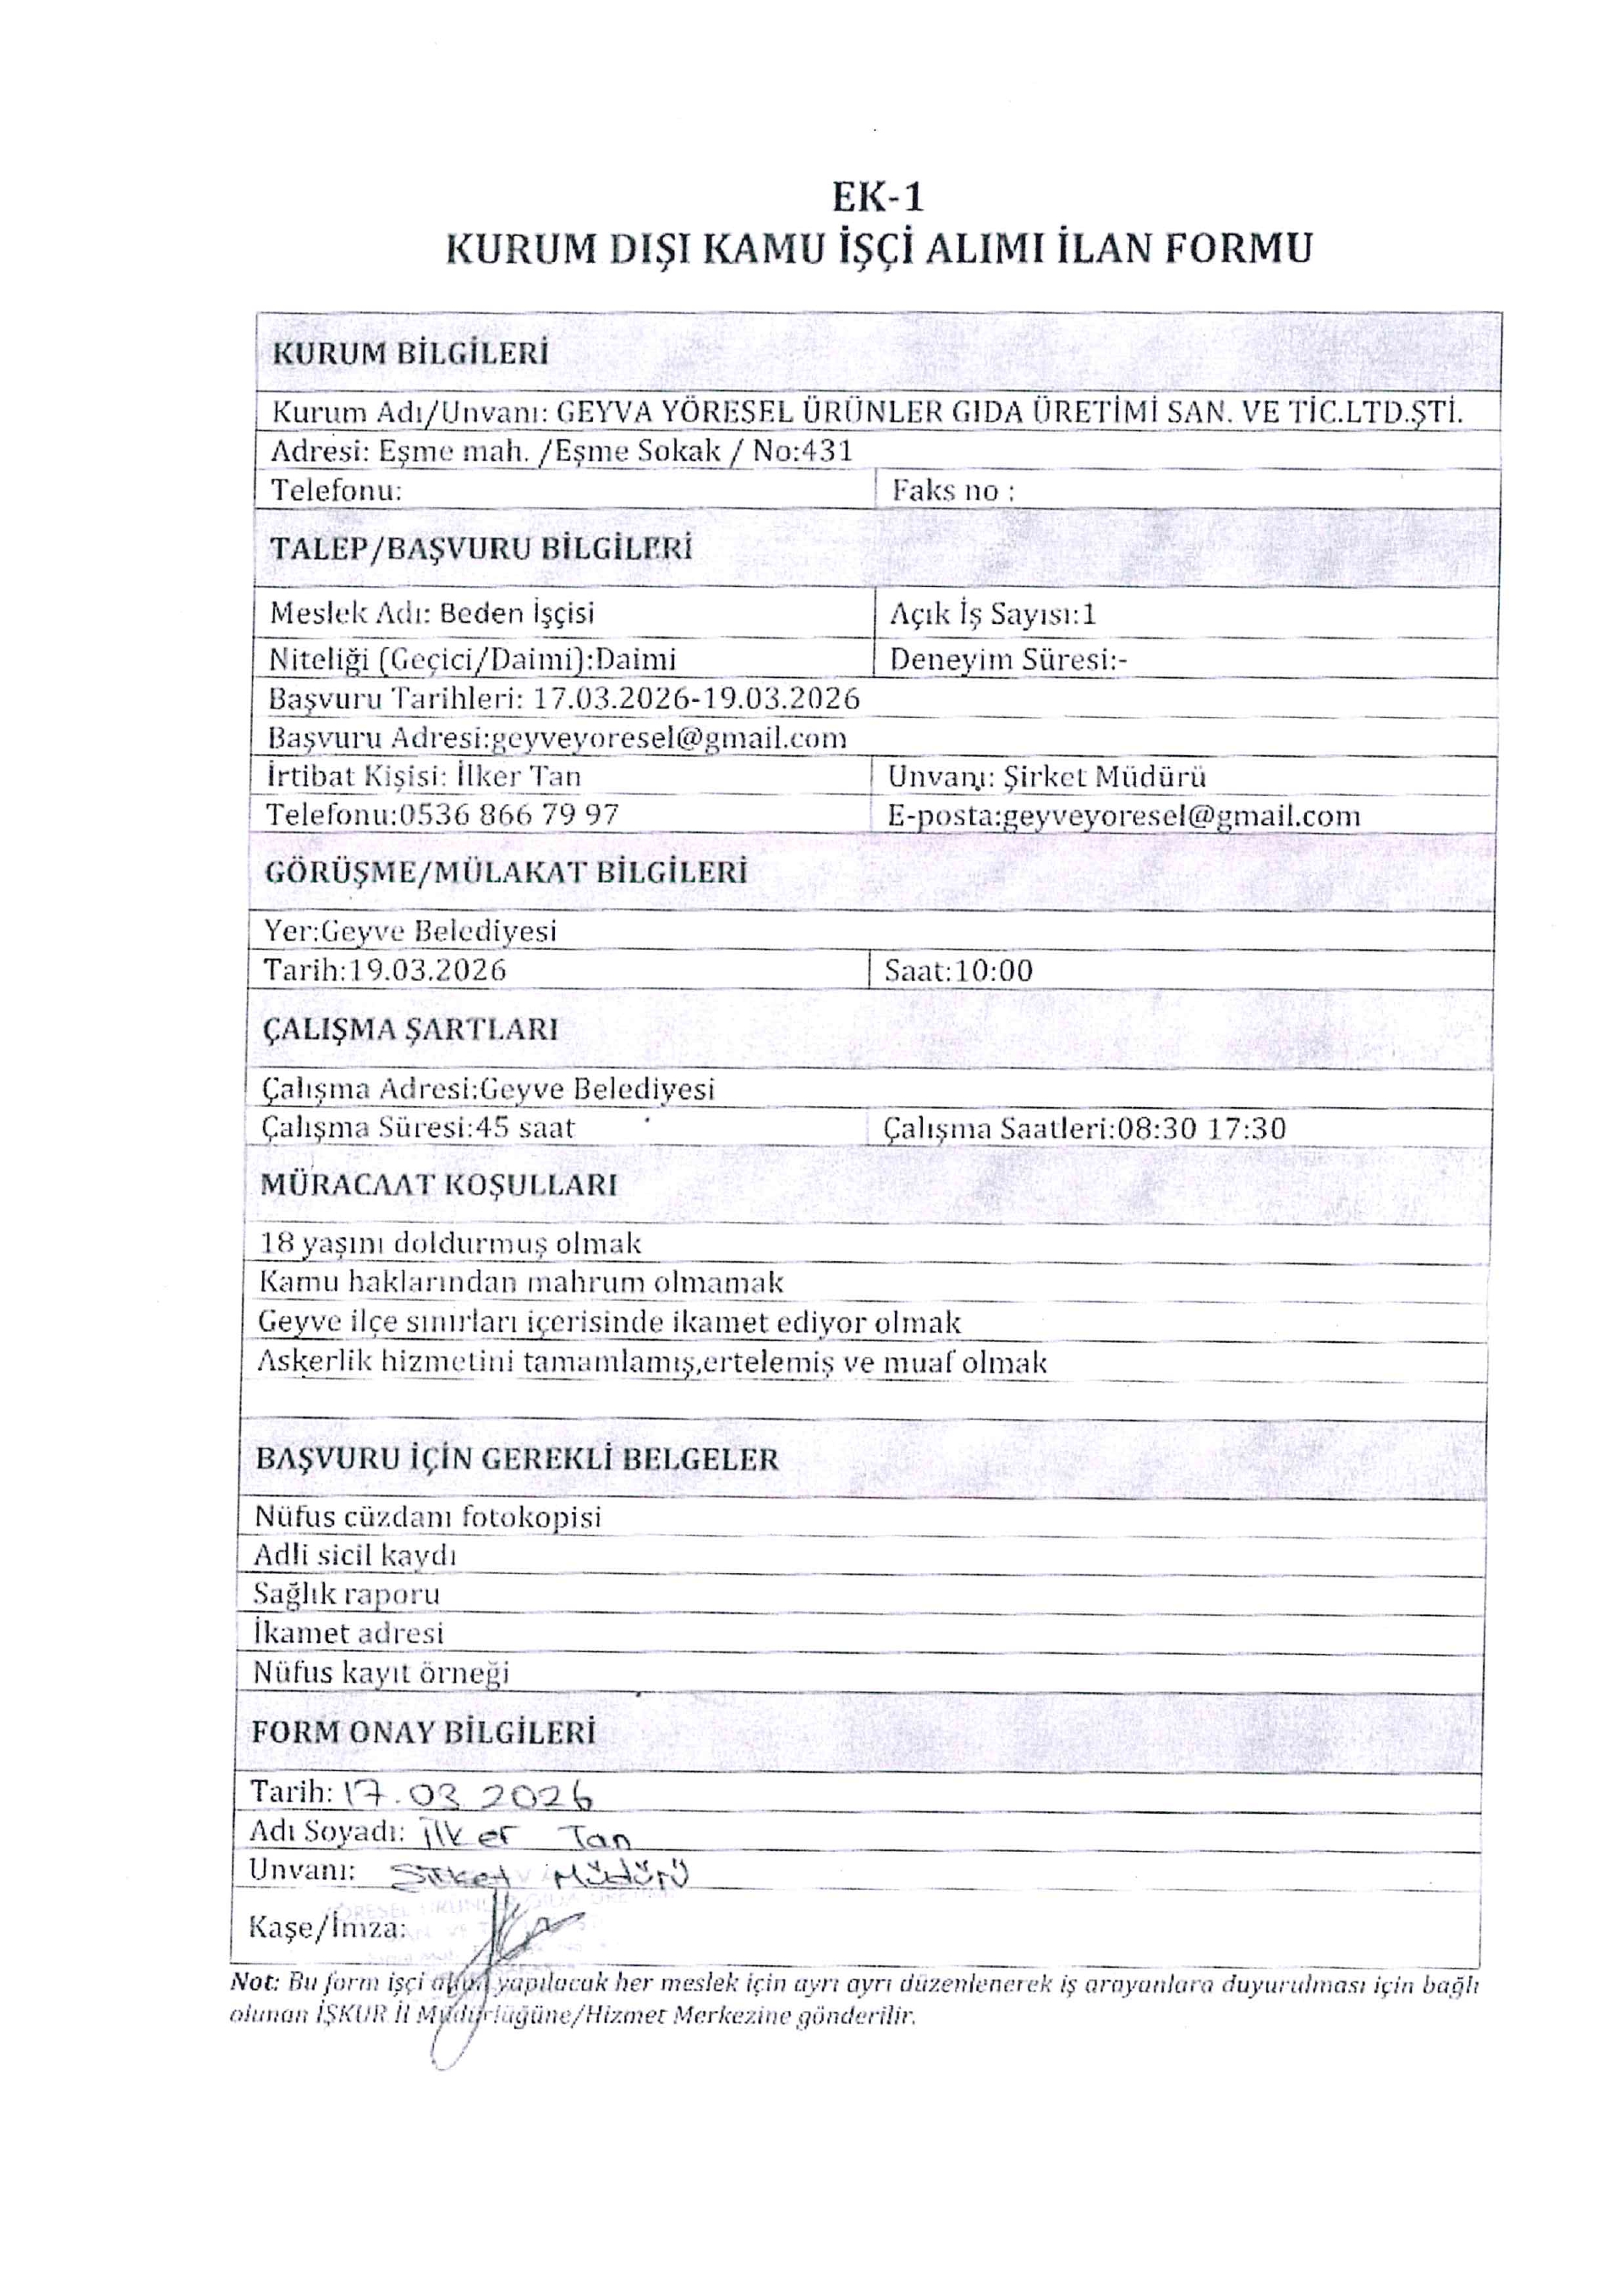 EK-1
KURUM DIŞI KAMU İŞÇİ ALIMI İLAN FORMU
KURUM BİLGİLERİ
Kurum Adı/Unvanı: GEYVA YÖRESEL ÜRÜNLER GIDA ÜRETİMİ SAN. VE TİC.LTD.ŞTİ.
Adresi: Eşme mah. /Eşme Sokak / No:431
Telefonu: Faks no :
TALEP/BAŞVURU BİLGİLERİ
Meslek Adı: Beden İşçisi Açık İş Sayısı:1
Niteliği (Geçici/Daimi):Daimi Deneyim Süresi:-
Başvuru Tarihleri: 17.03.2026-19.03.2026
Başvuru Adresi:geyveyoresel@gmail.com
İrtibat Kişisi: İlker Tan Unvanı: Şirket Müdürü
Telefonu:0536 866 79 97 E-posta:geyveyoresel@gmail.com
GÖRÜŞME/MÜLAKAT BİLGİLERİ
Yer:Geyve Belediyesi
Tarih:19.03.2026 Saat:10:00
ÇALIŞMA ŞARTLARI
Çalışma Adresi:Geyve Belediyesi
Çalışma Süresi:45 saat Çalışma Saatleri:08:30 17:30
MÜRACAAT KOŞULLARI
18 yaşını doldurmuş olmak
Kamu haklarından mahrum olmamak
Geyve ilçe sınırları içerisinde ikamet ediyor olmak
Askerlik hizmetini tamamlamış,ertelemiş ve muaf olmak
BAŞVURU İÇİN GEREKLİ BELGELER
Nüfus cüzdanı fotokopisi
Adli sicil kaydı
Sağlık raporu
İkamet adresi
Nüfus kayıt örneği
FORM ONAY BİLGİLERİ
Tarih: 17.03.2026
Adı Soyadı: İlker Tan
Unvanı: Şirket Müdürü
Kaşe/İmza:
Not: Bu form işçi alımı yapılacak her meslek için ayrı ayrı düzenlenerek iş arayanlara duyurulması için bağlı
olunan İŞKUR İl Müdürlüğüne/Hizmet Merkezine gönderilir.